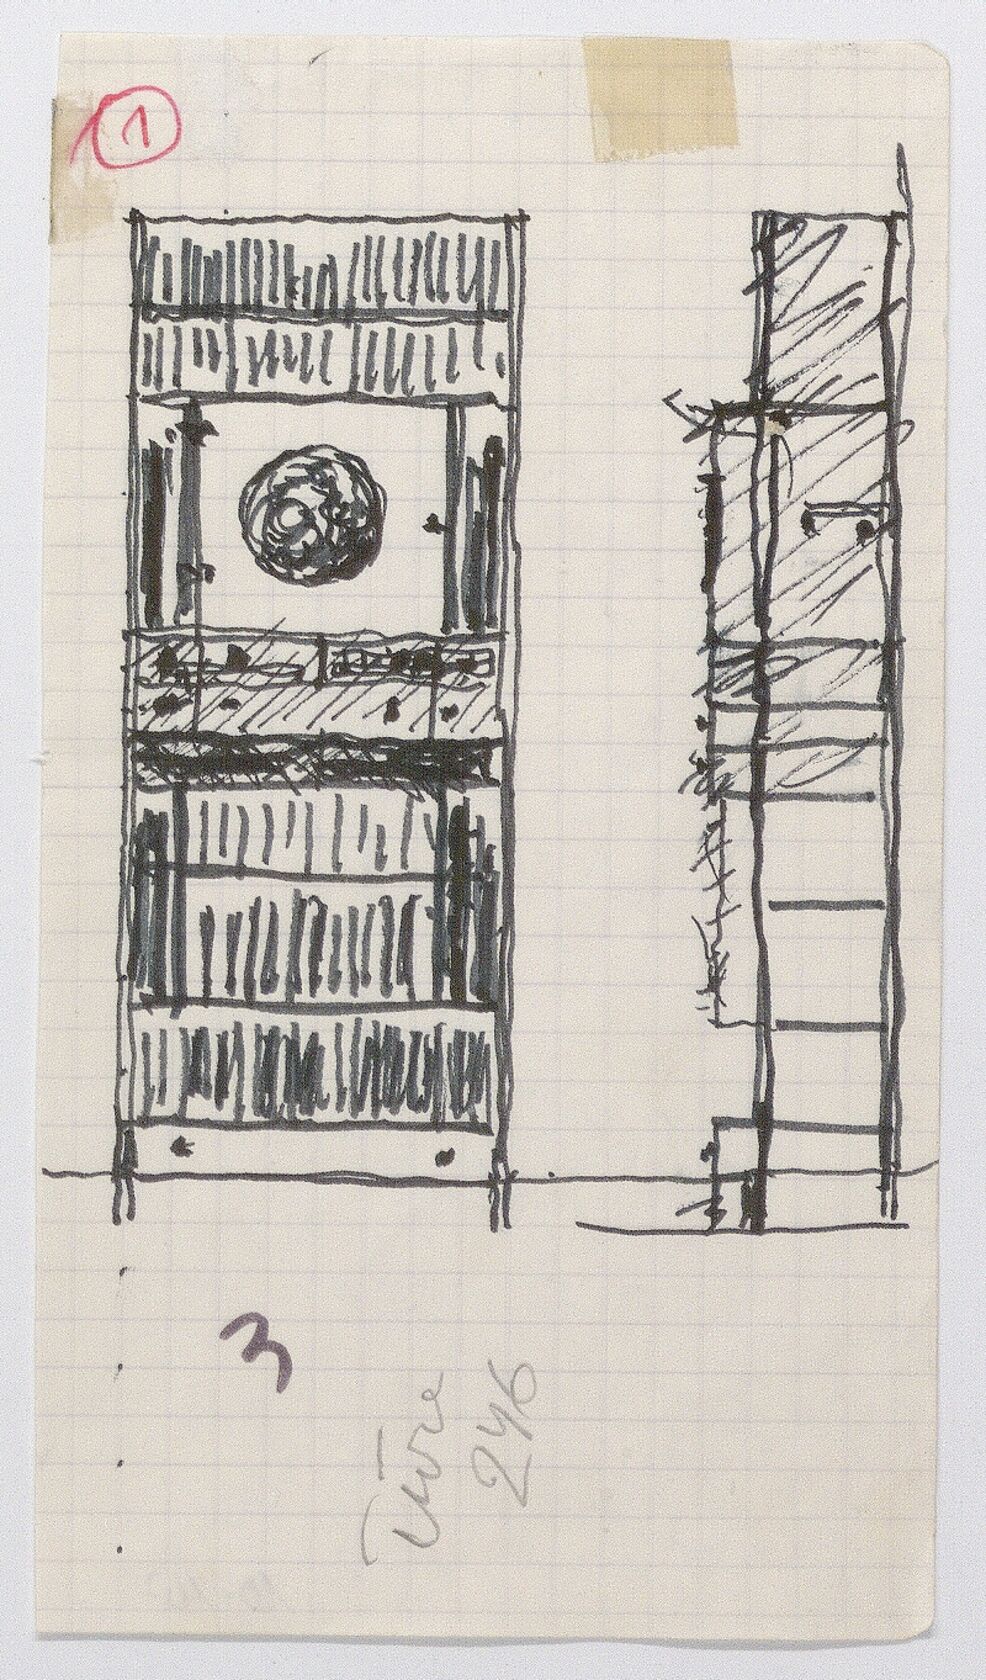 1
3
Türe
246